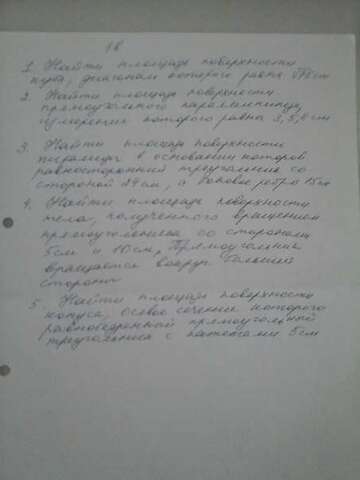 18
1. Найти площадь поверхности
куба, диагональ которого равна √75 см
2. Найти площадь поверхности
прямоугольного параллелепипеда
измерения которого равна 3, 5, 4 см
3. Найти площадь поверхности
пирамиды в основании которой
равносторонний треугольник со
стороной 24 см, а боковое ребро 15 см
4. Найти площадь поверхности
тела, полученного вращением
прямоугольника со сторонами
5 см и 10 см, Прямоугольник
вращается вокруг большей
стороны
5. Найти площадь поверхности
конуса, осевое сечение которого
равнобедренный прямоугольный
треугольник с катетами 5 см